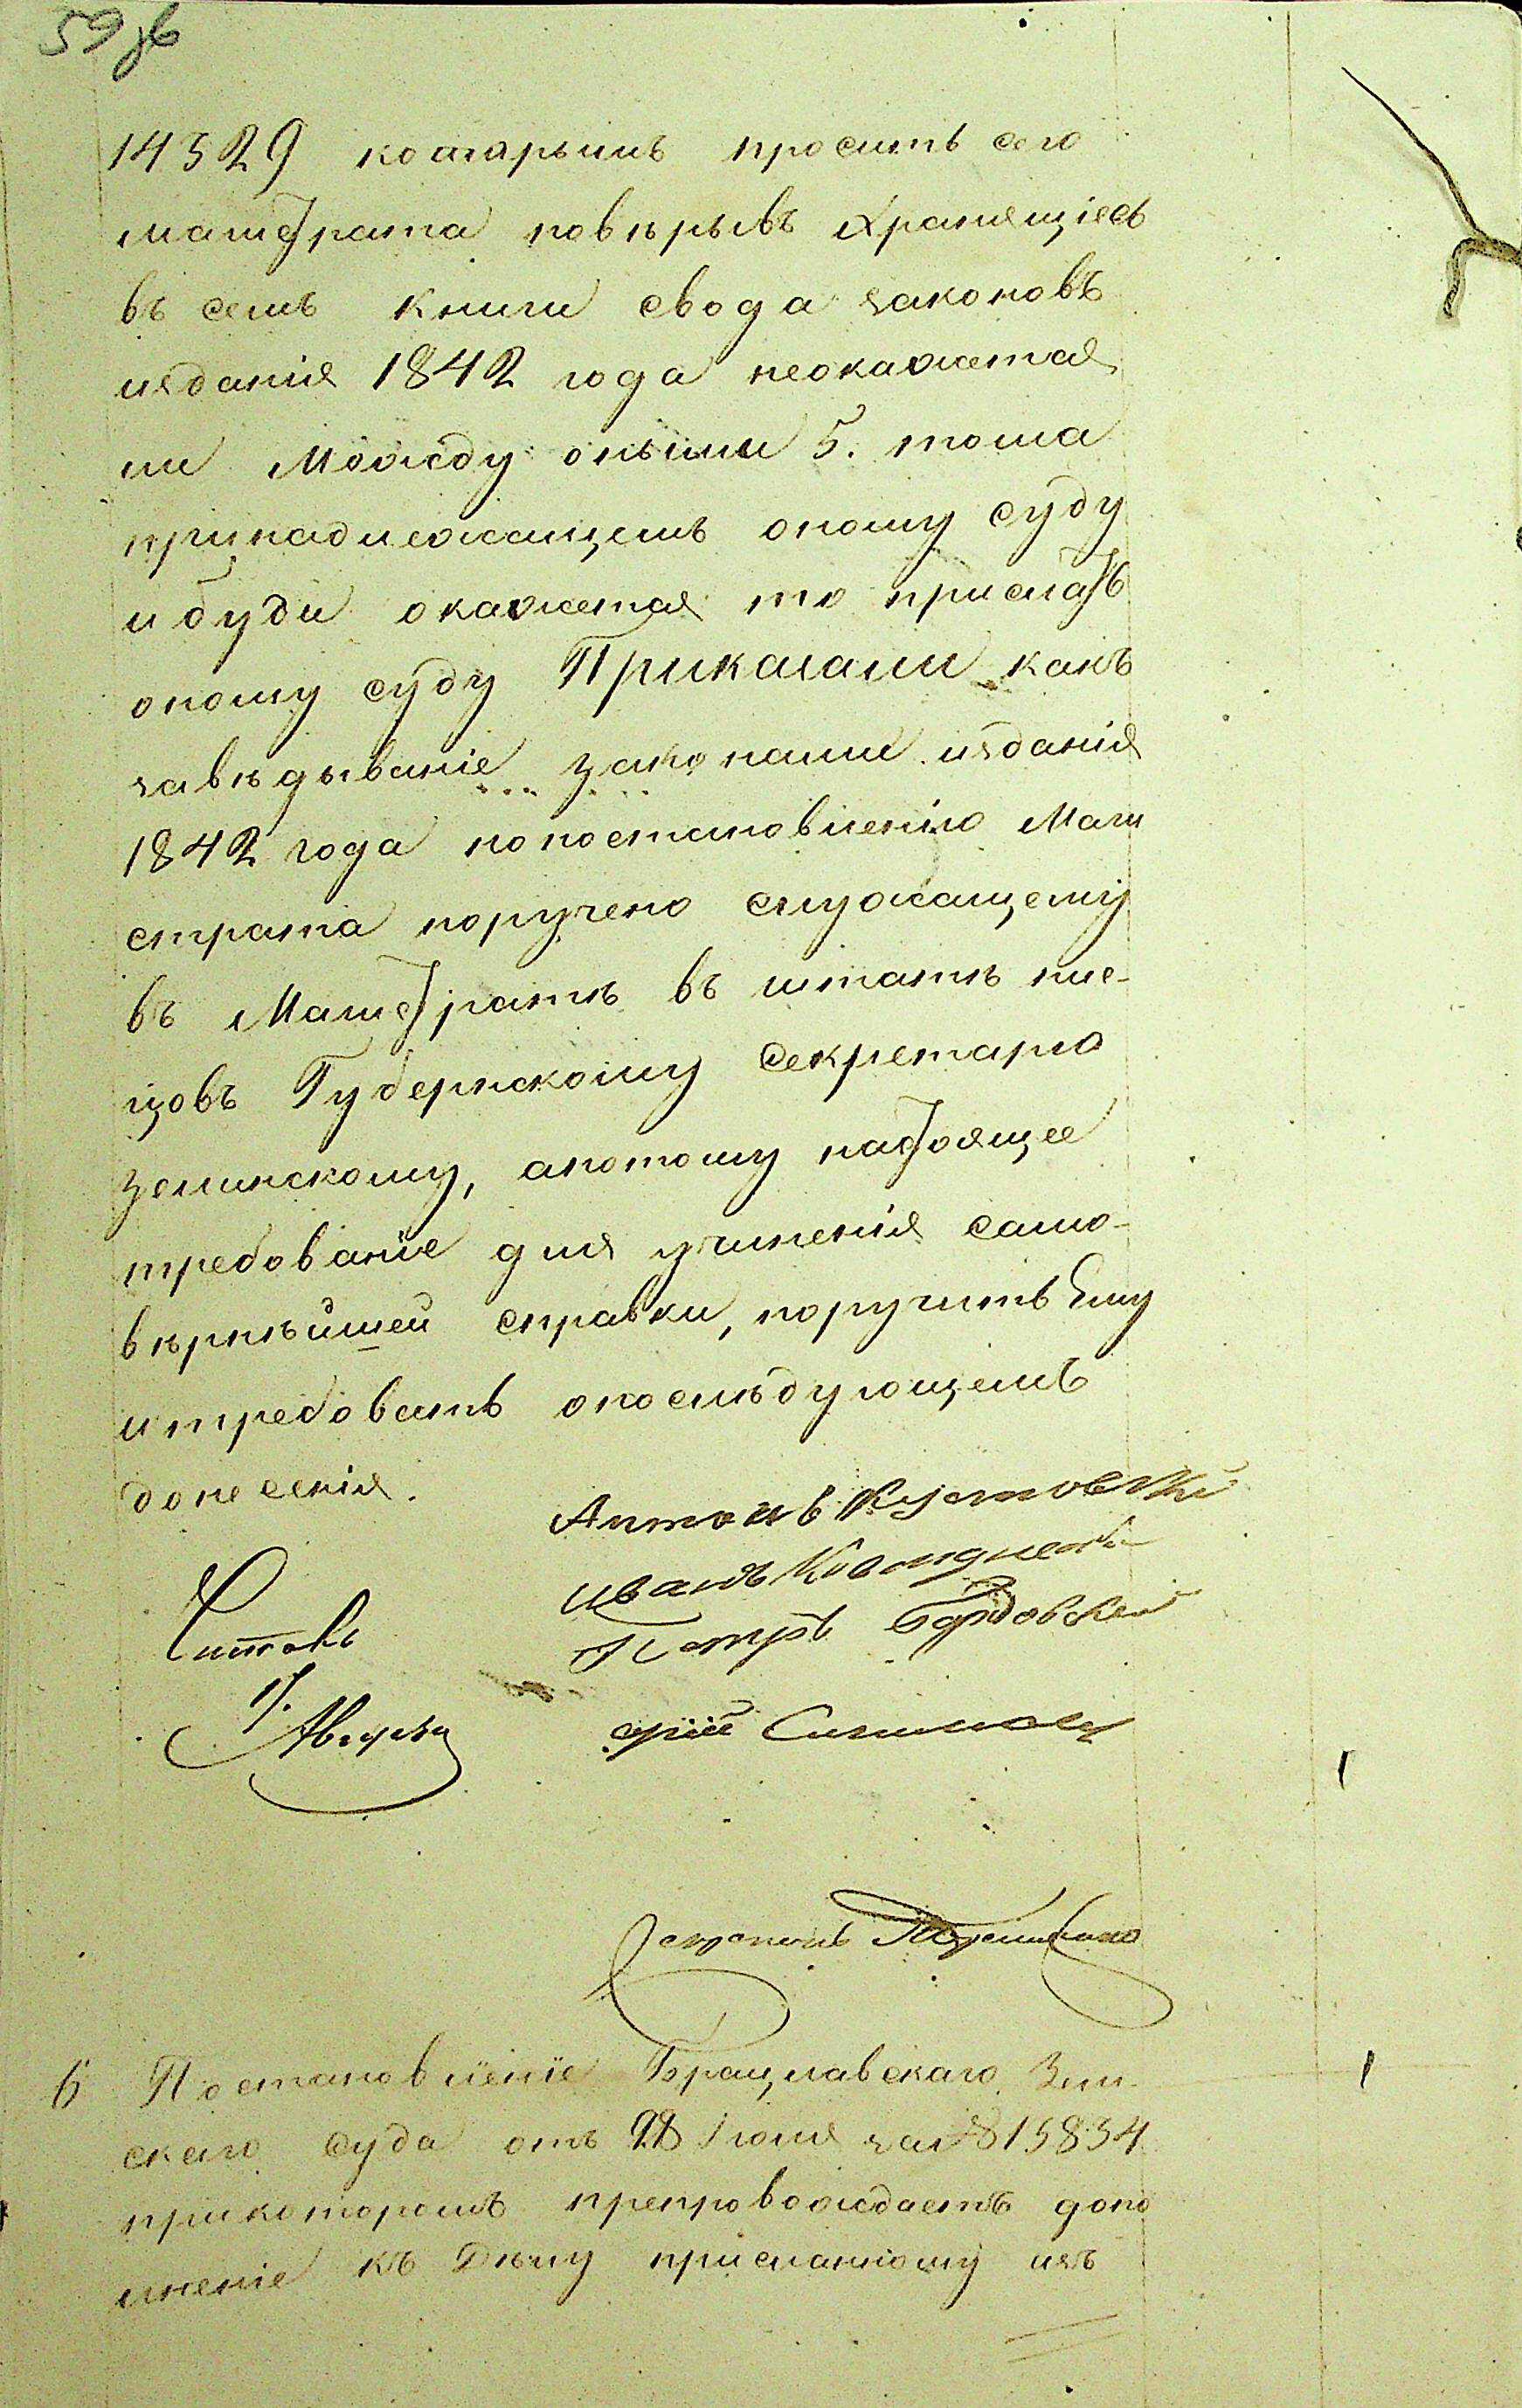 59 об
14329 которымъ проситъ сего
магистрата повѣрывъ хранящіесь
въ семъ книги свода законовъ
изданія 1842 года неокажется
ли Между оными 5. тома
принадлежащемъ оному суду
и буди окажется то прислать
оному суду Приказали какъ
завѣдываніе законами изданія
1842 года попостановленію Маги
страта поручено служащему
въ Магистратѣ въ штатѣ пис-
цовъ Губернскому Секретарю
Зелинскому, апотому настоящее
требованіе для учиненія само-
вѣрнѣйшей справки, поручить Ему
итребовать опослѣдующемъ
донесенія.
Антонъ
Иванъ
Петръ
Читалъ
17. Августа
6 Постановленіе Брацлавскаго Зем.
скаго суда отъ 28 Іюля за № 15834
прикоторомъ препровождаетъ допо
лненіе къ Дѣлу присланному изъ